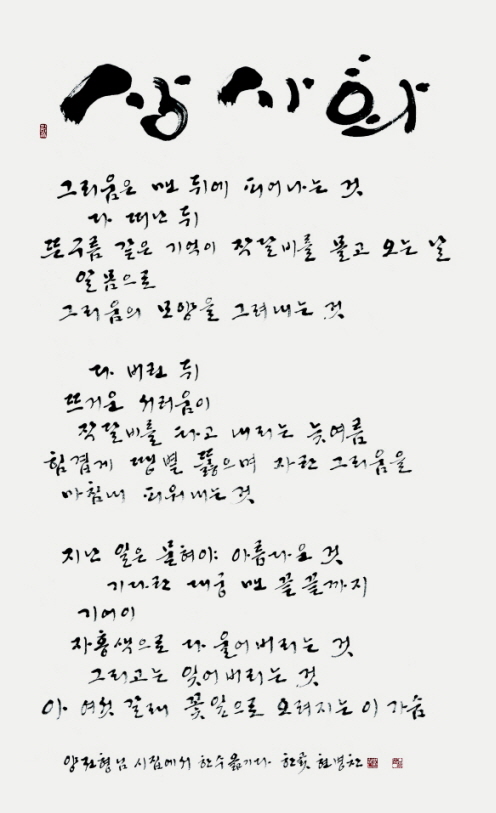 상사화
그리움은 맨 뒤에 피어나는 것
다 떠난 뒤
뜬구름 같은 기억이 작달비를 몰고 오는 날
알몸으로
그리움의 모양을 그려내는 것
다 버린 뒤
뜨거운 서러움이
작달비를 타고 내리는 늦여름
힘겹게 땡볕 뚫으며 자란 그리움을
마침내 피워내는 것
지난 일은 묻혀야 아름다운 것
기다란 대궁 맨 끝 끝까지
기어이
자홍색으로 다 울어버리는 것
그리고는 잊어버리는 것
아 여섯 갈래 꽃잎으로 오려지는 이 가슴
양전형님 시집에서 한수 옮기다 현병찬